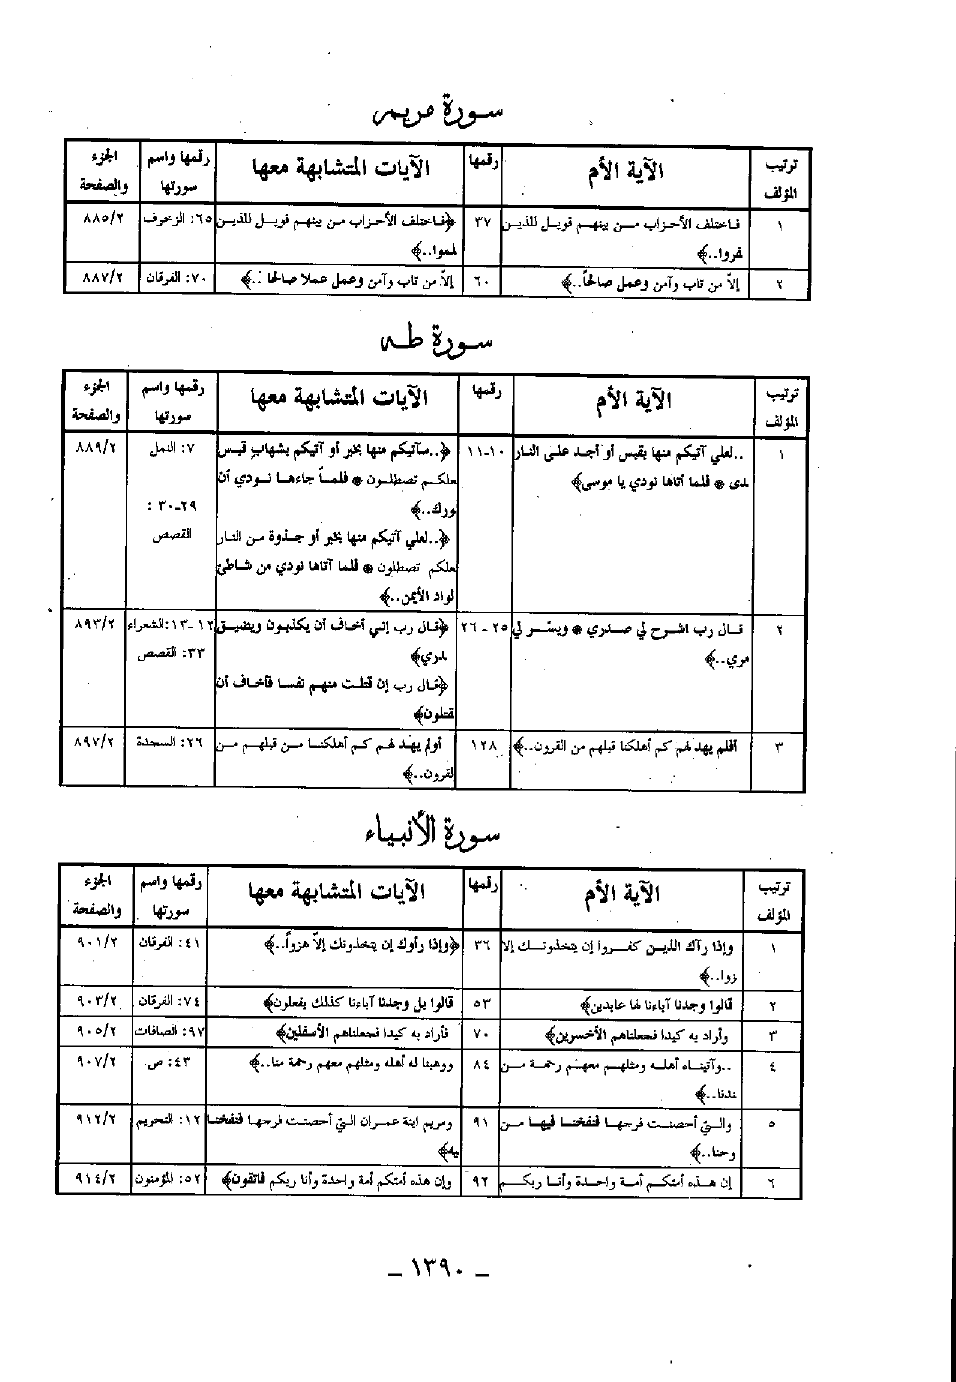 سورة مريم
ترتيب المؤلف | الآية الأم | رقمها | الآيات المتشابهة معها | رقمها واسم سورتها | الجزء والصفحة
١ | فاختلف الأحزاب من بينهم فويل للذين | ٣٧ | ﴿فاختلف الأحزاب من بينهم فويل للذين | ٦٥: الزخرف | ٨٨٥/٢
فروا..﴾ | لموا..﴾
٢ | إلاّ من تاب وآمن وعمل صالحاً..﴾ | ٦٠ | إلاّ من تاب وآمن وعمل عملا صالحا ..﴾ | ٧٠: الفرقان | ٨٨٧/٢
سورة طه
ترتيب المؤلف | الآية الأم | رقمها | الآيات المتشابهة معها | رقمها واسم سورتها | الجزء والصفحة
١ | ..لعلي آتيكم منها بقبس أو أجد على النار | ١٠-١١ | ﴿..سآتيكم منها بخبر أو آتيكم بشهاب قبس | ٧: النمل | ٨٨٩/٢
دى * فلما أتاها نودي يا موسى﴾ | علكم تصطلون * فلماّ جاءها نودي أن
ورك..﴾ | ٢٩-٣٠ :
﴿..لعلي آتيكم منها بخبر أو جذوة من النار | القصص
علكم تصطلون * فلما أتاها نودي من شاطئ
لواد الأيمن..﴾
٢ | قال رب اشرح لي صدري * ويسّر لي | ٢٥ - ٢٦ | ﴿قال رب إني أخاف أن يكذبون ويضيق | ١٢-١٣: الشعراء | ٨٩٣/٢
مري..﴾ | لدري﴾ | ٣٣: القصص
﴿قال رب إن قتلت منهم نفسا فأخاف أن
قتلون﴾
٣ | أفلم يهد لهم كم أهلكنا قبلهم من القرون..﴾ | ١٢٨ | أولم يهد لهم كم أهلكنا من قبلهم من | ٢٦: السجدة | ٨٩٧/٢
لقرون..﴾
سورة الأنبياء
ترتيب المؤلف | الآية الأم | رقمها | الآيات المتشابهة معها | رقمها واسم سورتها | الجزء والصفحة
١ | وإذا رآك الذين كفروا إن يتخذونك إلا | ٣٦ | ﴿وإذا رأوك إن يتخذونك إلاّ هزواً..﴾ | ٤١: الفرقان | ٩٠١/٢
زوا..﴾
٢ | قالوا وجدنا آباءنا لها عابدين﴾ | ٥٣ | قالوا بل وجدنا آباءنا كذلك يفعلون﴾ | ٧٤: الفرقان | ٩٠٣/٢
٣ | وأراد به كيدا فجعلناهم الأخسرين﴾ | ٧٠ | فأراد به كيدا فجعلناهم الأسفلين﴾ | ٩٧: الصافات | ٩٠٥/٢
٤ | ..وآتيناه أهله ومثلهم معهم رحمة من | ٨٤ | ووهبنا له أهله ومثلهم معهم رحمة منا..﴾ | ٤٣: ص | ٩٠٧/٢
ندنا..﴾
٥ | والتي أحصنت فرجها فنفخنا فيها من | ٩١ | ومريم ابنة عمران التي أحصنت فرجها فنفخنا | ١٢: التحريم | ٩١٢/٢
وحنا..﴾ | يه﴾
٦ | إن هذه أمتكم أمة واحدة وأنا ربكم | ٩٢ | وإن هذه أمتكم أمة واحدة وأنا ربكم فاتقون﴾ | ٥٢: المؤمنون | ٩١٤/٢
– ١٣٩٠ –